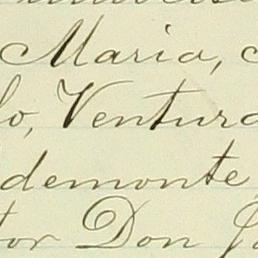 Maria,
lo, Ventura
demonte
tor Don